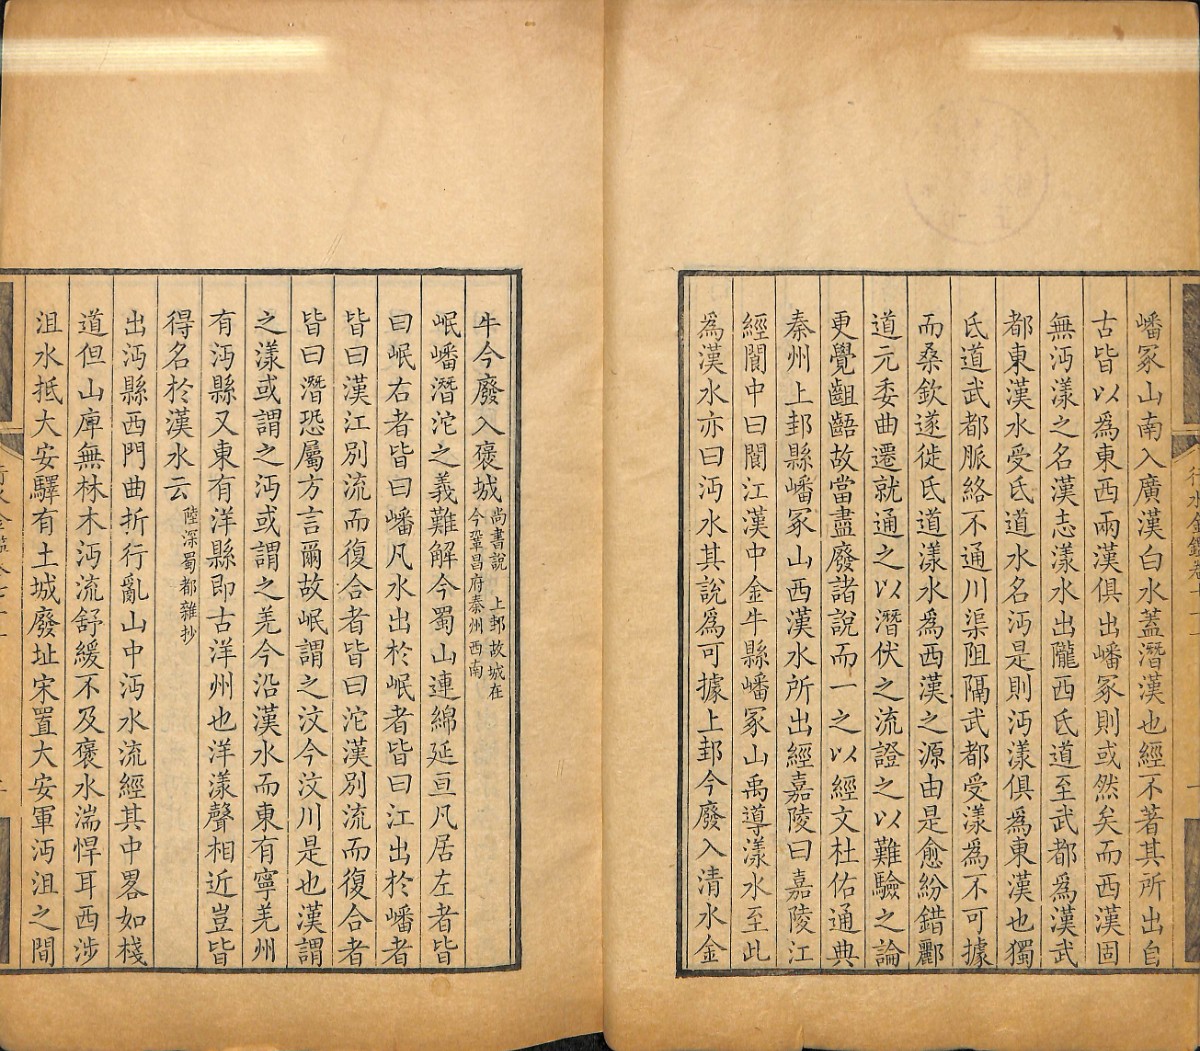 嶓冢山南入廣漢白水蓋潛漢也經不著其所出自
古皆以為東西兩漢俱出嶓冢則或然矣而西漢固
無沔漾之名漢志漾水出隴西氐道至武都為漢武
都東漢水受氐道水名沔是則沔漾俱為東漢也獨
氐道武都脈絡不通川渠阻隔武都受漾為不可據
而桑欽遂徙氐道漾水為西漢之源由是愈紛錯酈
道元委曲遷就通之以潛伏之流證之以難驗之論
更覺齟齬故當盡廢諸說而一之以經文杜佑通典
秦州上邽縣嶓冢山西漢水所出經嘉陵曰嘉陵江
經閬中曰閬江漢中金牛縣嶓冢山禹導漾水至此
為漢水亦曰沔水其說為可據上邽今廢入清水金
牛今廢入褒城尚書說 上邽故城在今鞏昌府秦州西南
岷嶓潛沱之義難解今蜀山連綿延亘凡居左者皆
曰岷右者皆曰嶓凡水出於岷者皆曰江出於嶓者
皆曰漢江別流而復合者皆曰沱漢別流而復合者
皆曰潛恐屬方言爾故岷謂之汶今汶川是也漢謂
之漾或謂之沔或謂之羌今沿漢水而東有寧羌州
有沔縣又東有洋縣即古洋州也洋漾聲相近豈皆
得名於漢水云陸深蜀都雜抄
出沔縣西門曲折行亂山中沔水流經其中畧如棧
道但山庳無林木沔流舒緩不及褒水湍悍耳西涉
沮水抵大安驛有土城廢址宋置大安軍沔沮之間